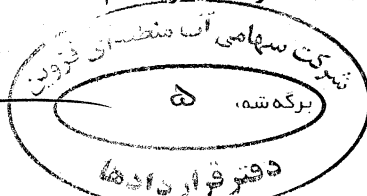 شرکت سهامی آب منطقه‌ای قزوین
برگه شه، ۵
دفتر قراردادها